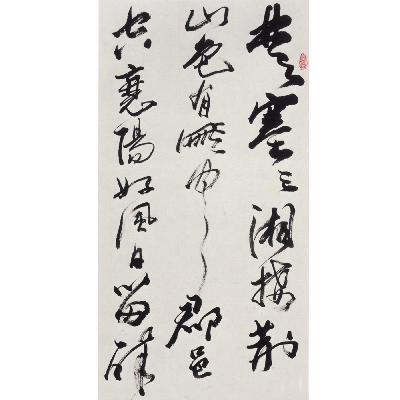 楚塞三湘接荊
山色有無中郡邑
空襄陽好風日留醉